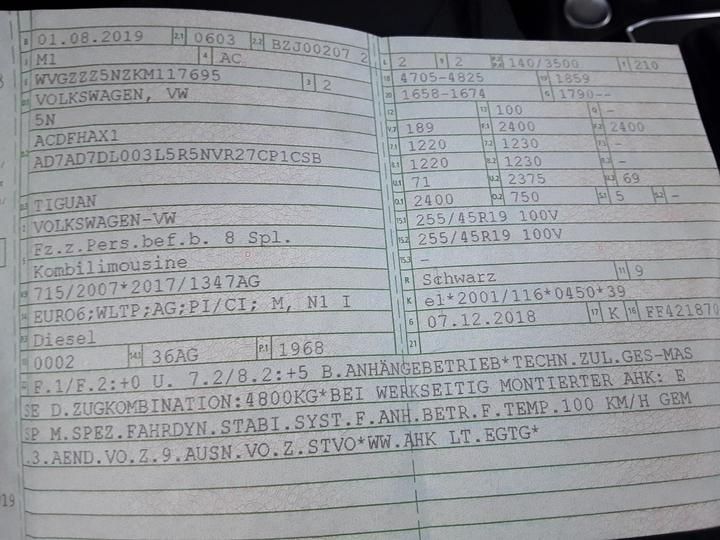 B 01.08.2019 2.1 0603 2.2 BZJ00207 2
J M1 4 AC
E WVGZZZ5NZKM117695 3 2
VOLKSWAGEN, VW
5N
ACDFHAX1
AD7AD7DL003L5R5NVR27CP1CSB
TIGUAN
VOLKSWAGEN-VW
Fz.z.Pers.bef.b. 8 Spl.
Kombilimousine
715/2007*2017/1347AG
EURO6;WLTP;AG;PI/CI; M, N1 I
Diesel
0002 14.1 36AG P.1 1968
L 2 9 2 140/3500 T 210
18 4705-4825 19 1859
20 1658-1674 G 1790--
12 13 100 Q -
V.7 189 F.1 2400 F.2 2400
7.1 1220 7.2 1230 7.3 -
8.1 1220 8.2 1230 8.3 -
U.1 71 U.2 2375 U.3 69
O.1 2400 O.2 750 S.1 5 S.2 -
15.1 255/45R19 100V
15.2 255/45R19 100V
15.3 -
R Schwarz 11 9
K e1*2001/116*0450*39
6 07.12.2018 17 K 16 FF421870
21
F.1/F.2:+0 U. 7.2/8.2:+5 B.ANHÄNGEBETRIEB*TECHN.ZUL.GES-MAS
SE D.ZUGKOMBINATION:4800KG*BEI WERKSEITIG MONTIERTER AHK: E
SP M.SPEZ.FAHRDYN.STABI.SYST.F.ANH.BETR.F.TEMP.100 KM/H GEM
.3.AEND.VO.Z.9.AUSN.VO.Z.STVO*WW.AHK LT.EGTG*